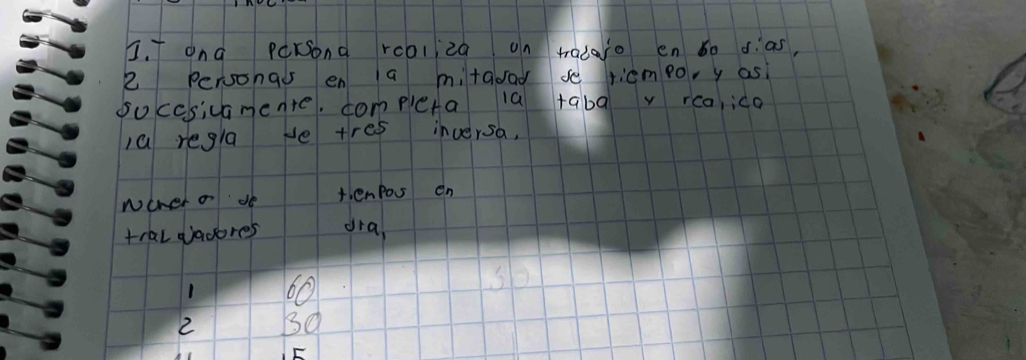 1.- una persona realiza un trabajo en 60 dias,
2 personas en la mitadad de tiempo, y asi
succesivamente. completa la taba y realica
la regla de tres inversa.
Numero de tienpos en
tralvajadores dia,
1 60
2 30
4 15